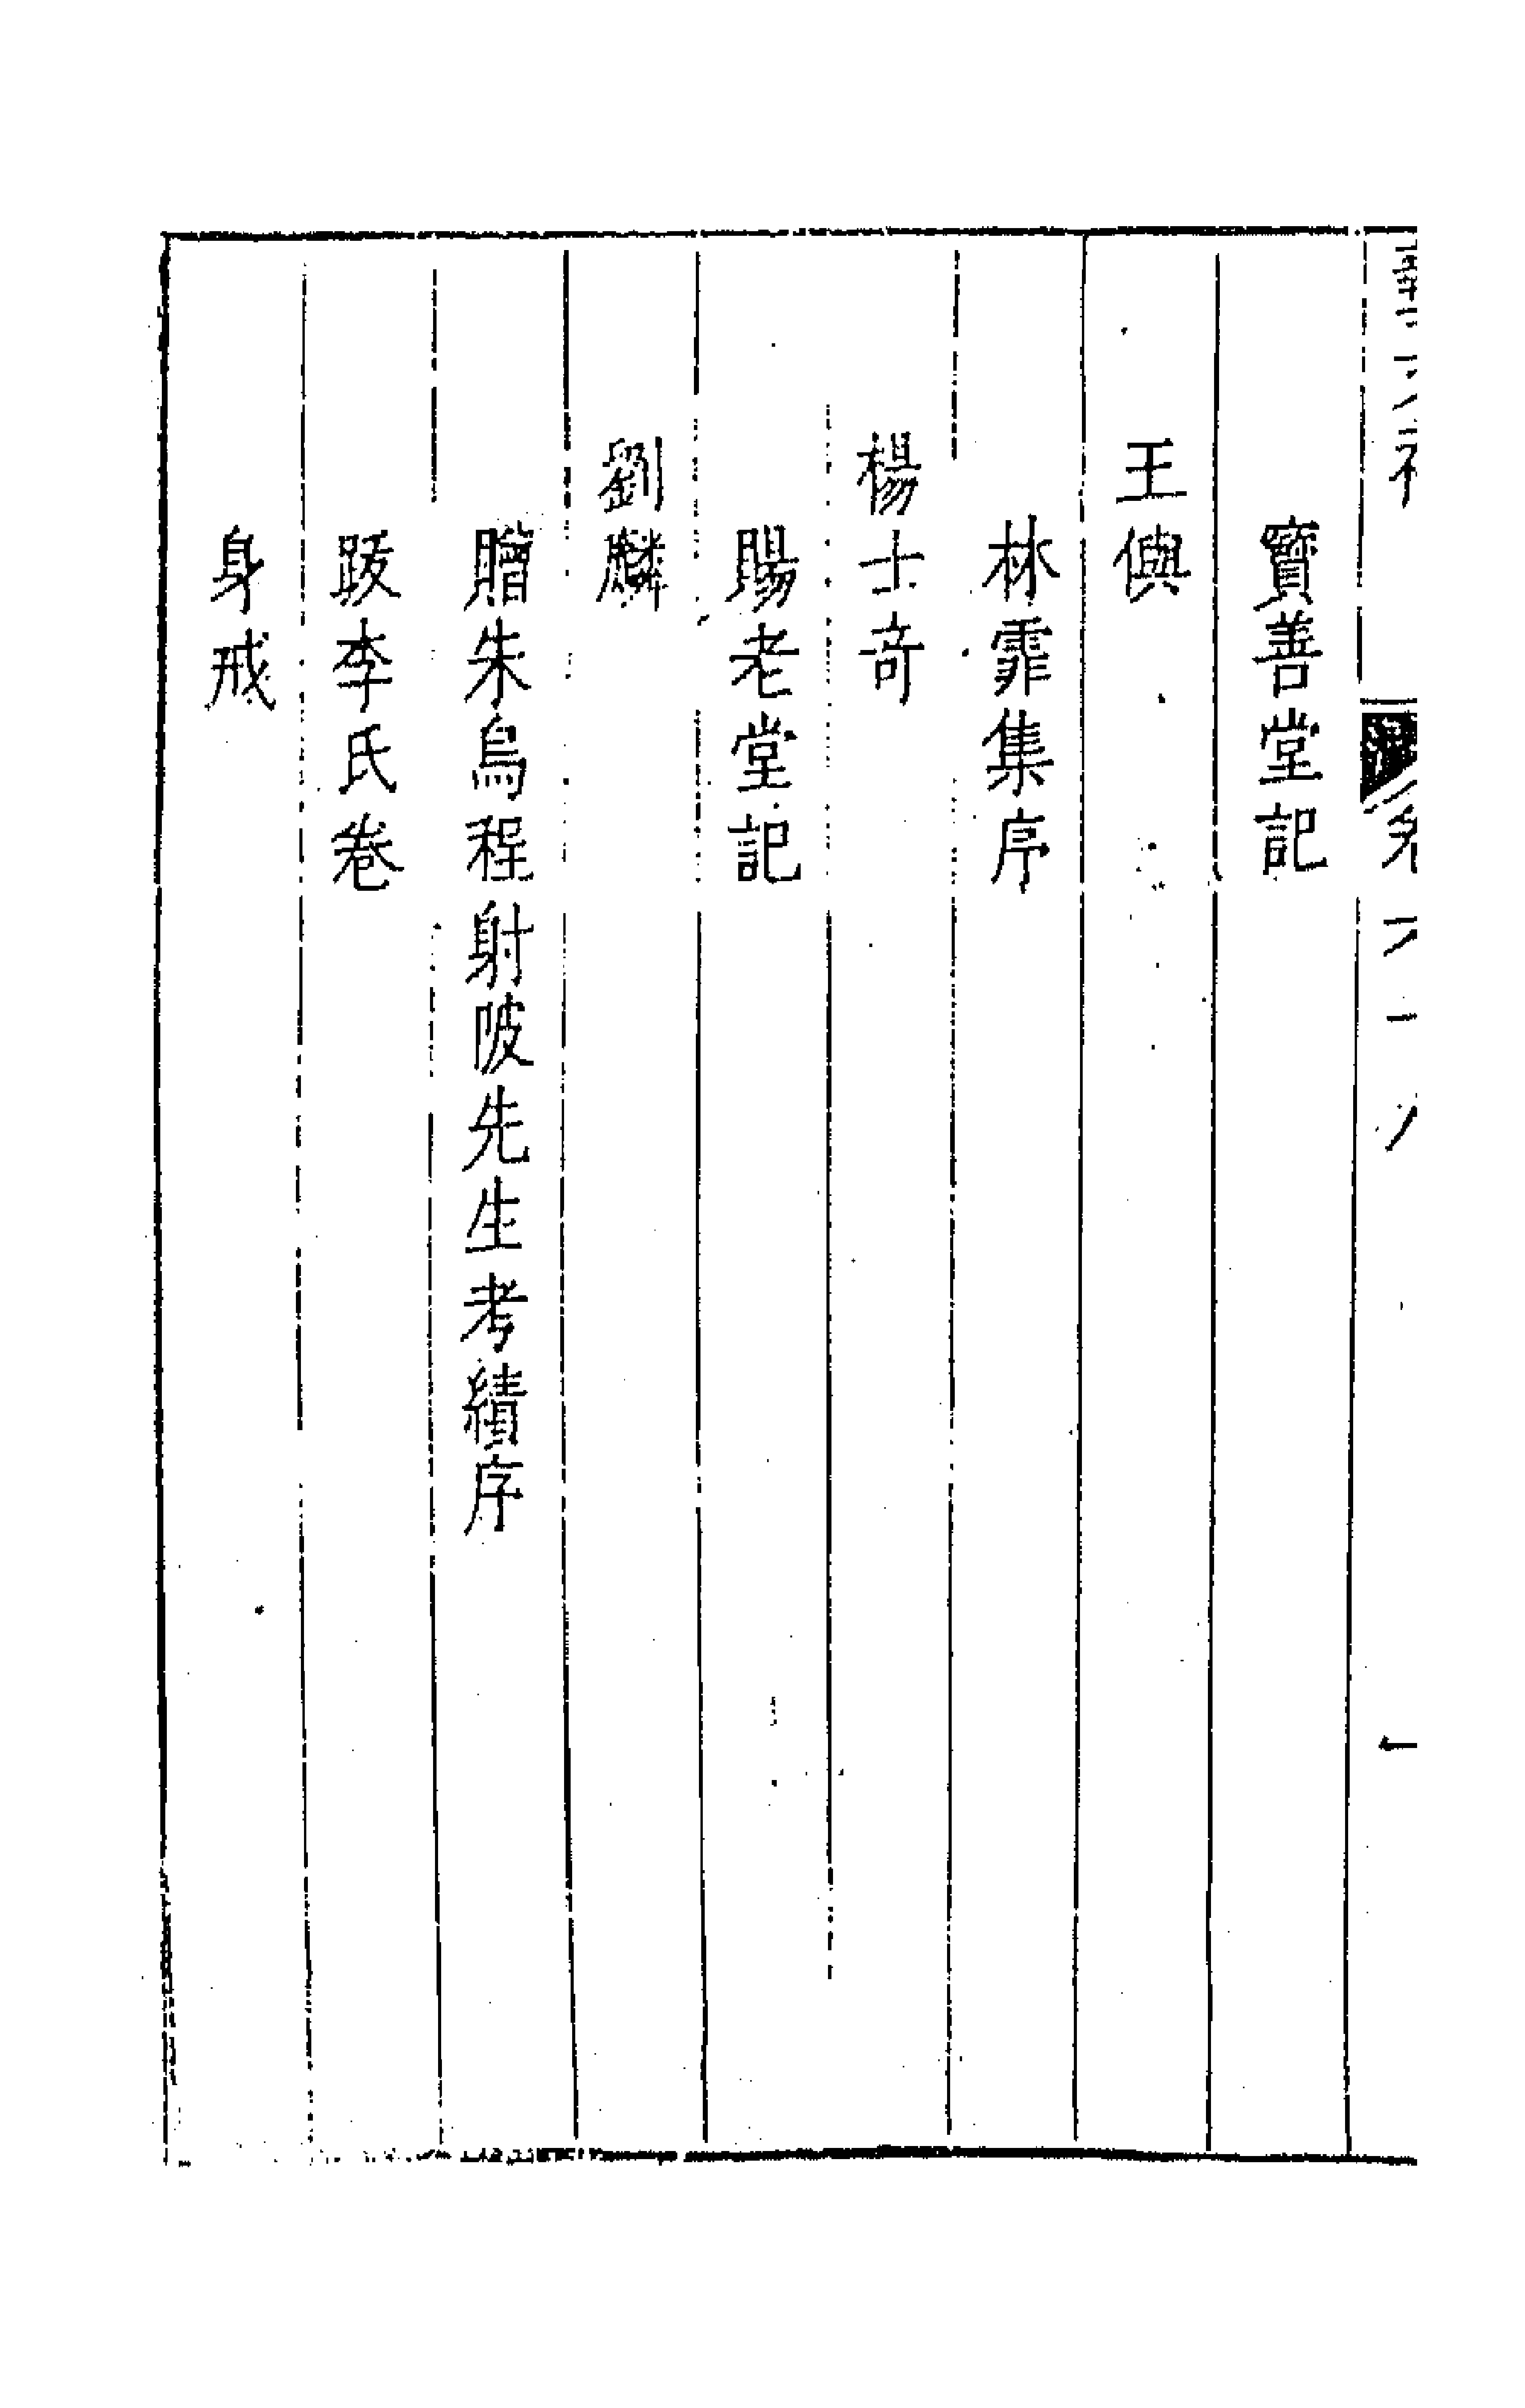 寶善堂記
王㒜
林霏集序
楊士竒
賜老堂記
劉麟
贈朱烏程射陂先生考績序
跋李氏卷
身戒